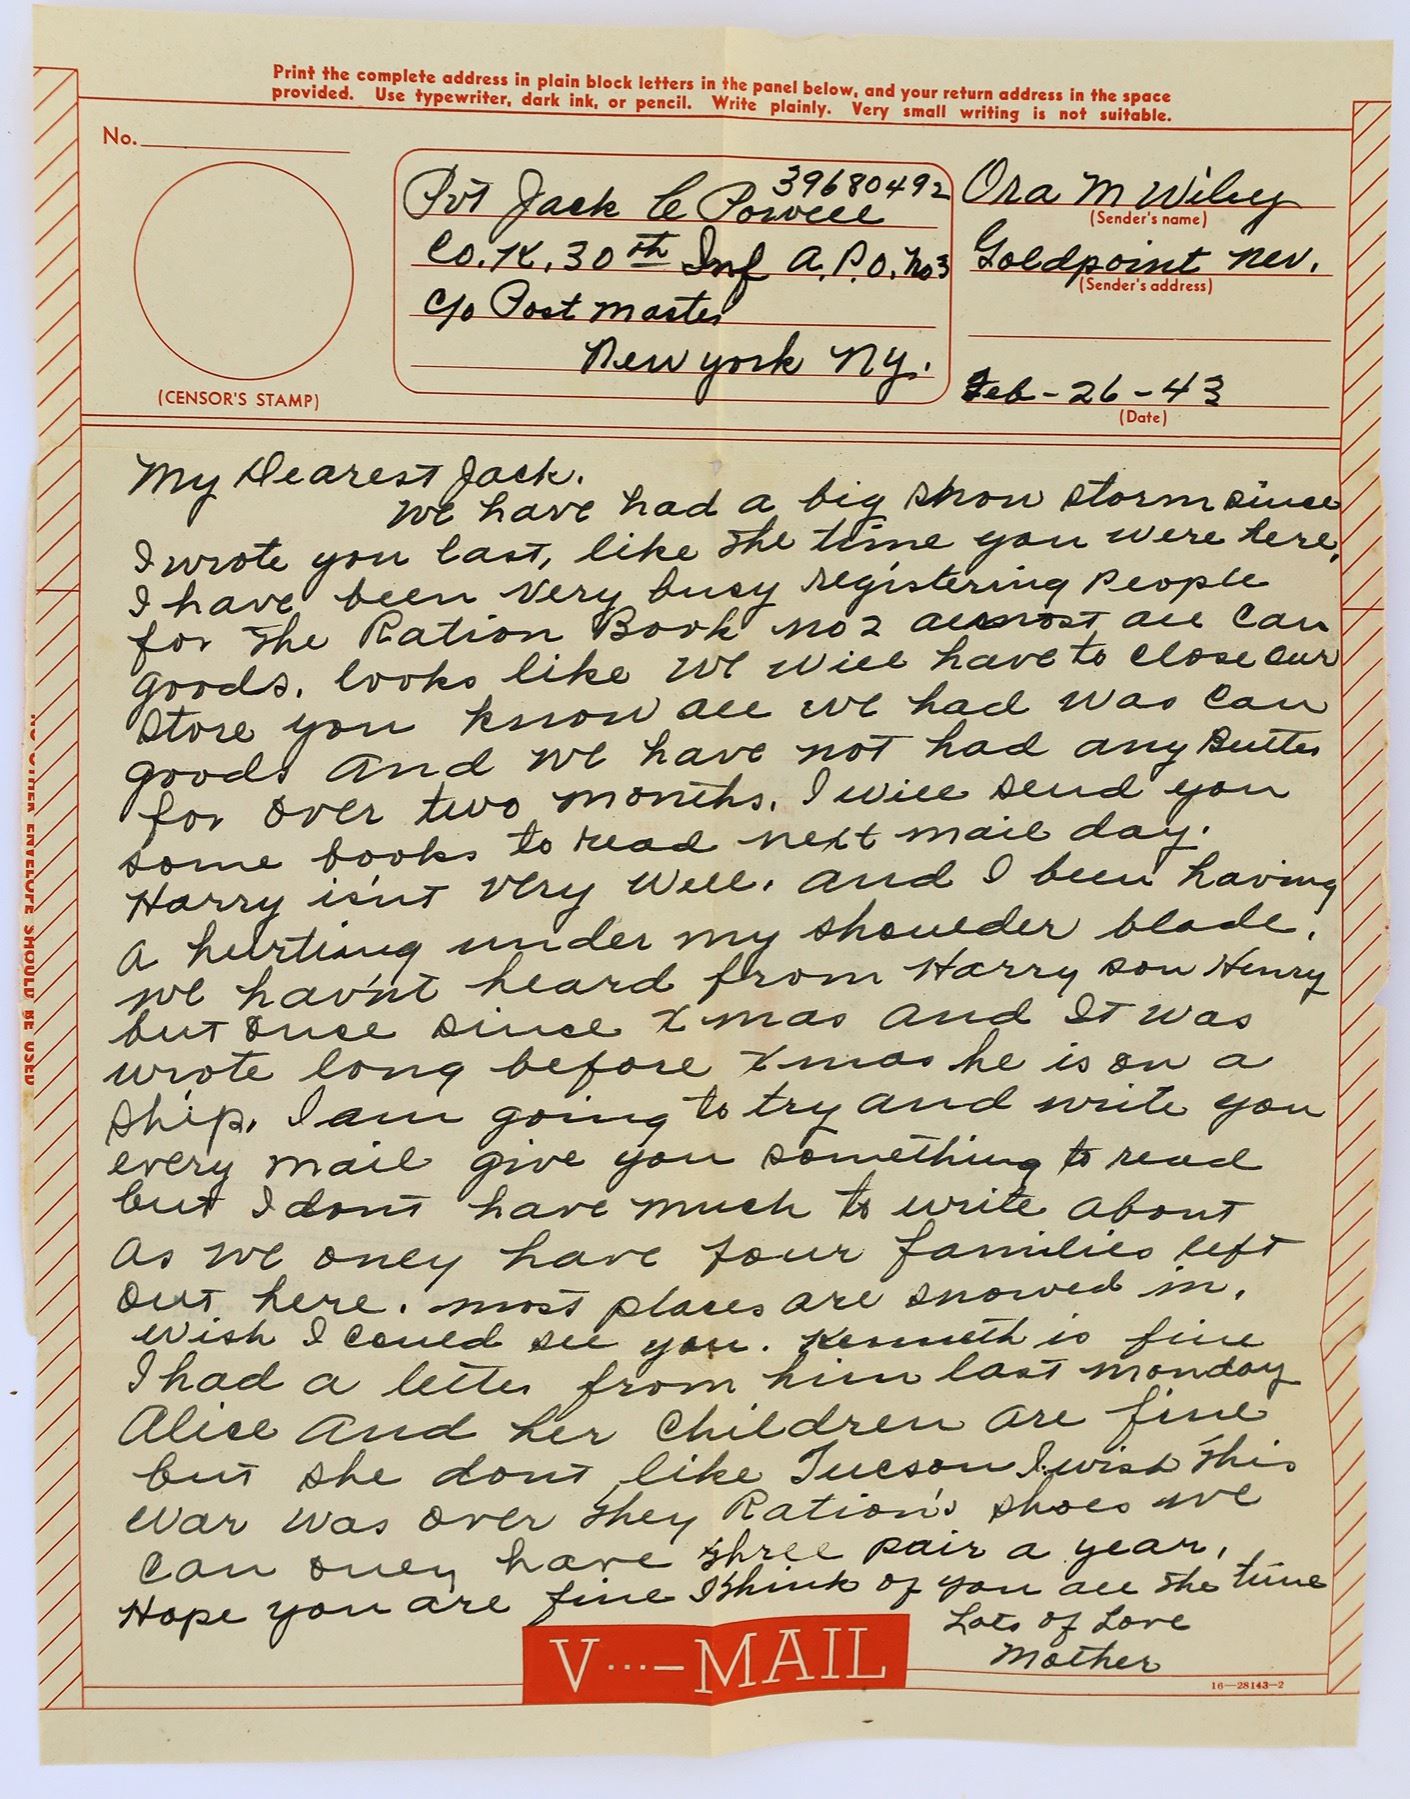 Print the complete address in plain block letters in the panel below, and your return address in the space
provided. Use typewriter, dark ink, or pencil. Write plainly. Very small writing is not suitable.
No.
(CENSOR'S STAMP)
39680492
Pvt Jack C Powell
Co. K. 30th Inf A.P.O. No 3
c/o Post Master
New York NY.
Ora M Wiley
(Sender's name)
Goldpoint Nev.
(Sender's address)
Feb-26-43
(Date)
My Dearest Jack.
We have had a big snow storm since
I wrote you last, like the time you were here.
I have been very busy registering People
for the Ration Book no 2 almost all Can
goods. looks like we will have to close our
store you know all we had was Can
goods And we have not had any Butter
for over two months. I will send you
some books to read next mail day.
Harry isn't very well. And I been having
a hurting under my shoulder blade.
we hav'nt heard from Harry son Henry
but once since Xmas and It was
wrote long before Xmas he is on a
ship. I am going to try and write you
every mail give you something to read
but I dont have much to write about
as we only have four families left
out here. most places are snowed in.
Wish I could see you. Kenneth is fine
I had a letter from him last monday
Alice And her Children are fine
but she dont like Tucson I wish this
War was over they Ration's shoes we
Can only have three pair a year.
Hope you are fine I think of you all the time
Lots of Love
Mother
V···— MAIL
16—28143-2
ENVELOPE SHOULD BE USED